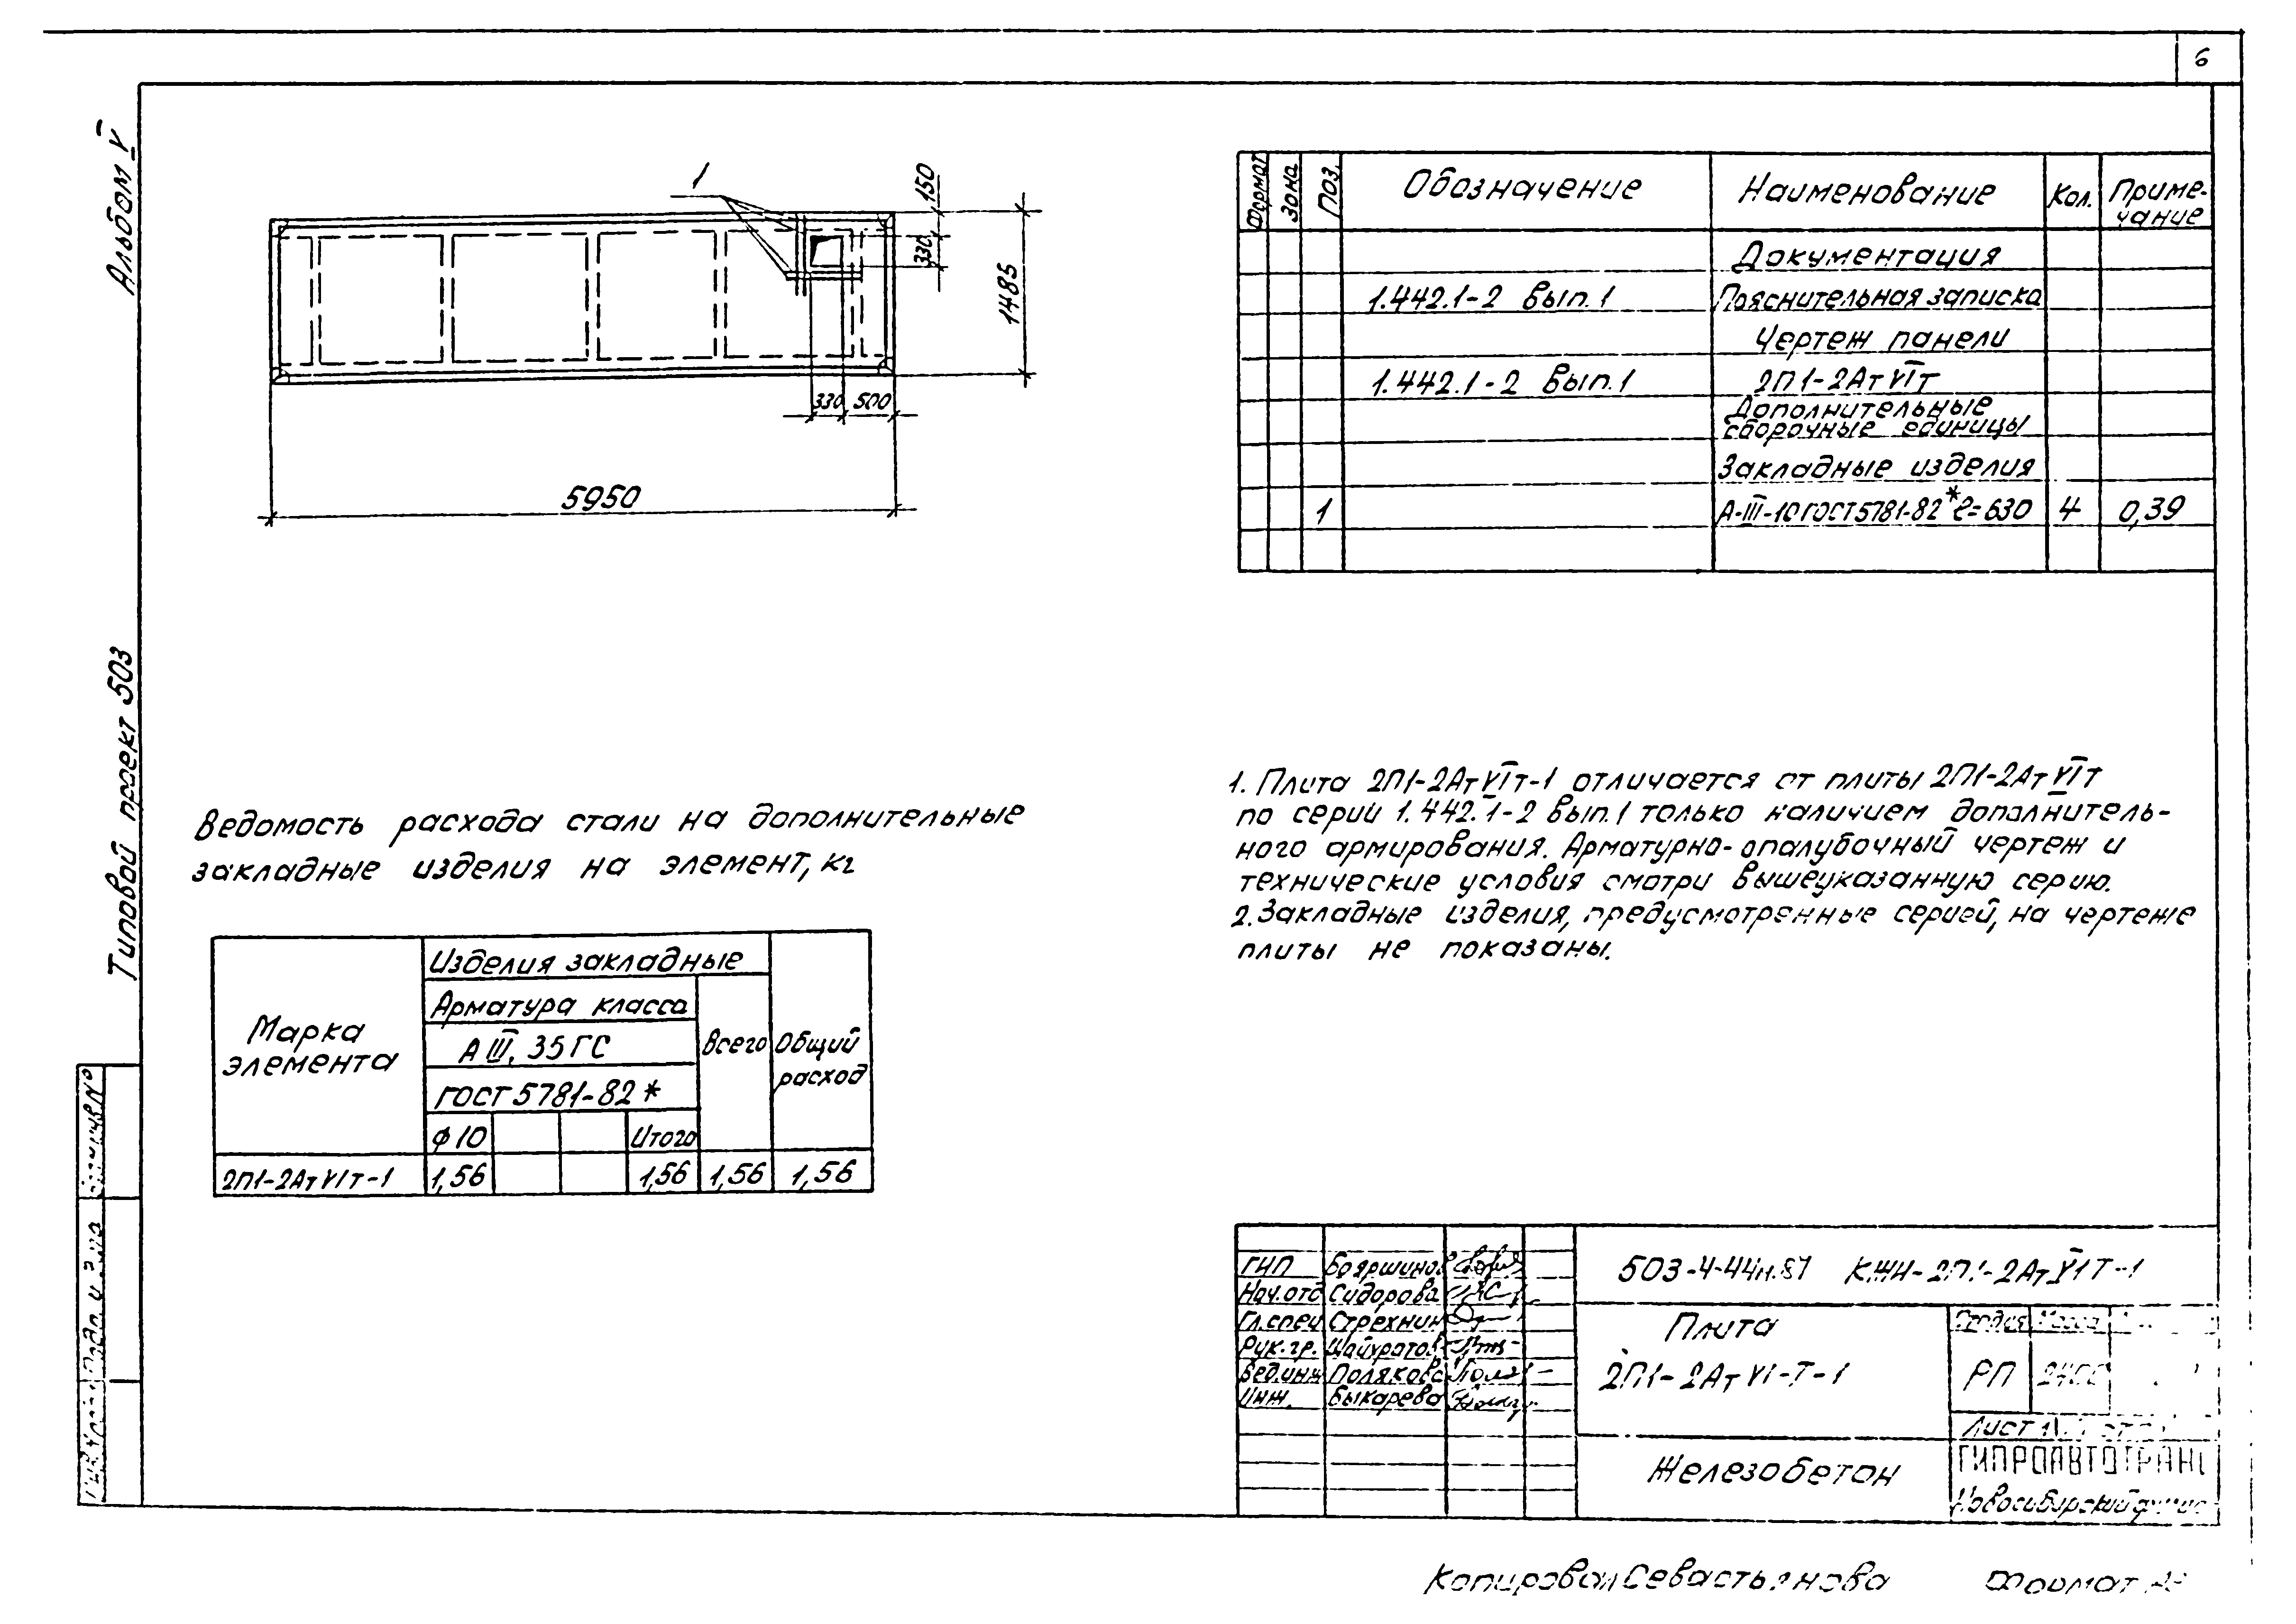 6
Альбом V
Типовой проект 503
1
150
330
1485
330 500
5950
Формат Зона Поз. Обозначение Наименование Кол. Приме-
чание
Документация
1.442.1-2 вып.1 Пояснительная записка
Чертеж панели
1.442.1-2 вып.1 2П1-2АтVIт
Дополнительные
сборочные единицы
Закладные изделия
1 А-III-10 ГОСТ 5781-82* ℓ=630 4 0,39
1. Плита 2П1-2АтVIт-1 отличается от плиты 2П1-2АтVIт
по серии 1.442.1-2 вып.1 только наличием дополнитель-
ного армирования. Арматурно-опалубочный чертеж и
технические условия смотри вышеуказанную серию.
2. Закладные изделия, предусмотренные серией, на чертеже
плиты не показаны.
Ведомость расхода стали на дополнительные
закладные изделия на элемент, кг
Марка
элемента
Изделия закладные
Арматура класса
А III, 35ГС
ГОСТ 5781-82*
Всего
Общий
расход
ф10 Итого
2П1-2АтVIт-1 1,56 1,56 1,56 1,56
ГИП Бояршинов
Нач.отд Сидорова
Гл.спец Стрехнин
Рук.гр.
Вед.инж Полякова
Инж. Быкарева
503-4-44п.87 КЖИ-2П1-2АтVIТ-1
Плита
2П1-2АтVI-Т-1
Стадия Масса
РП
Лист 1
Железобетон
ГИПРОАВТОТРАНС
Новосибирский
Копировал Севастьянова Формат